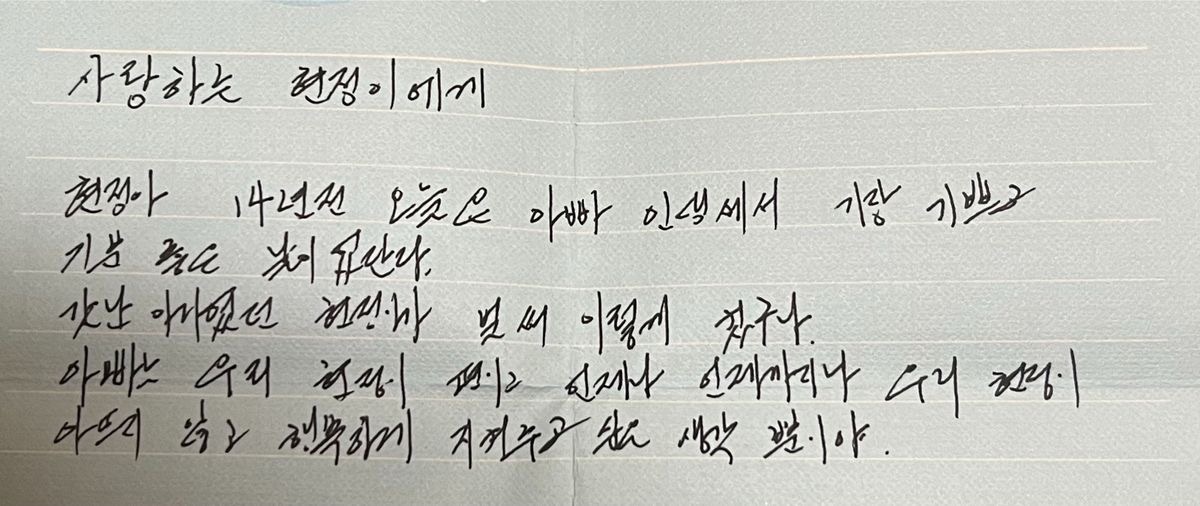 사랑하는 현정이에게
현정아 14년전 오늘은 아빠 인생에서 가장 기쁘고
기분 좋은 날이었단다.
갓난 아기였던 현정이가 벌써 이렇게 컸구나.
아빠는 우리 현정이 편이고 언제나 언제까지나 우리 현정이
아프지 않고 행복하게 지켜주고 싶은 생각 뿐이야.